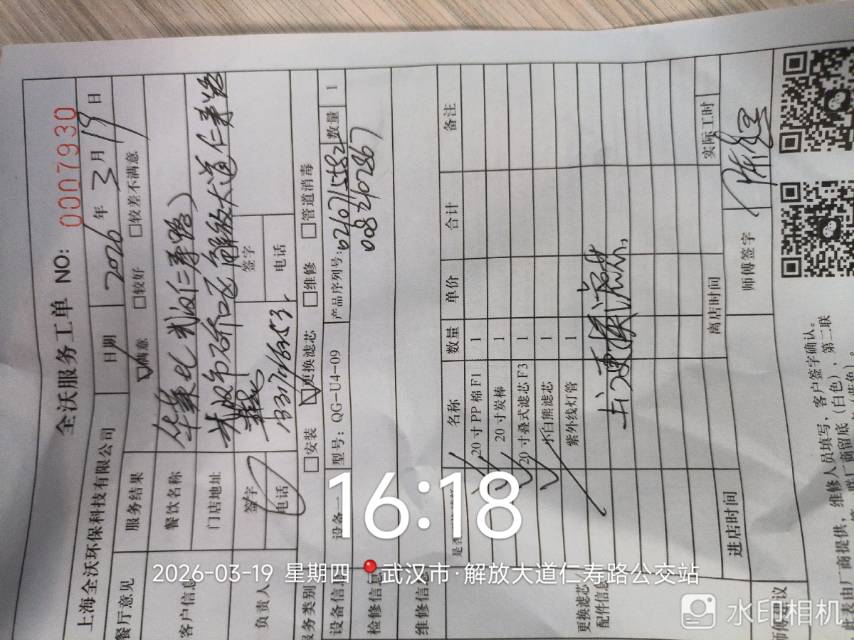 全沃服务工单 NO: 0007930
上海全沃环保科技有限公司 日期 2026年3月19日
餐厅意见 服务结果 ☑满意 □较好 □较差不满意
客户信息 餐饮名称 华莱士(武汉仁寿路)
门店地址 武汉市硚口区解放大道仁寿路
负责人 签字 签字
电话 电话
服务类别 □安装 ☑更换滤芯 □维修 □管道消毒
设备信息 设备一 型号: QG-U4-09 产品序列号: 数量 1
0082102867
检修信息
维修信息
名称 数量 单价 合计 备注
20寸PP棉F1 1
20寸炭棒 1
20寸叠式滤芯F3 1
小白熊滤芯 1
紫外线灯管 1
更换滤芯
配件信息
上门更换滤芯.
进店时间 离店时间 实际工时
师傅签字
16:18
2026-03-19 星期四 武汉市·解放大道仁寿路公交站
水印相机